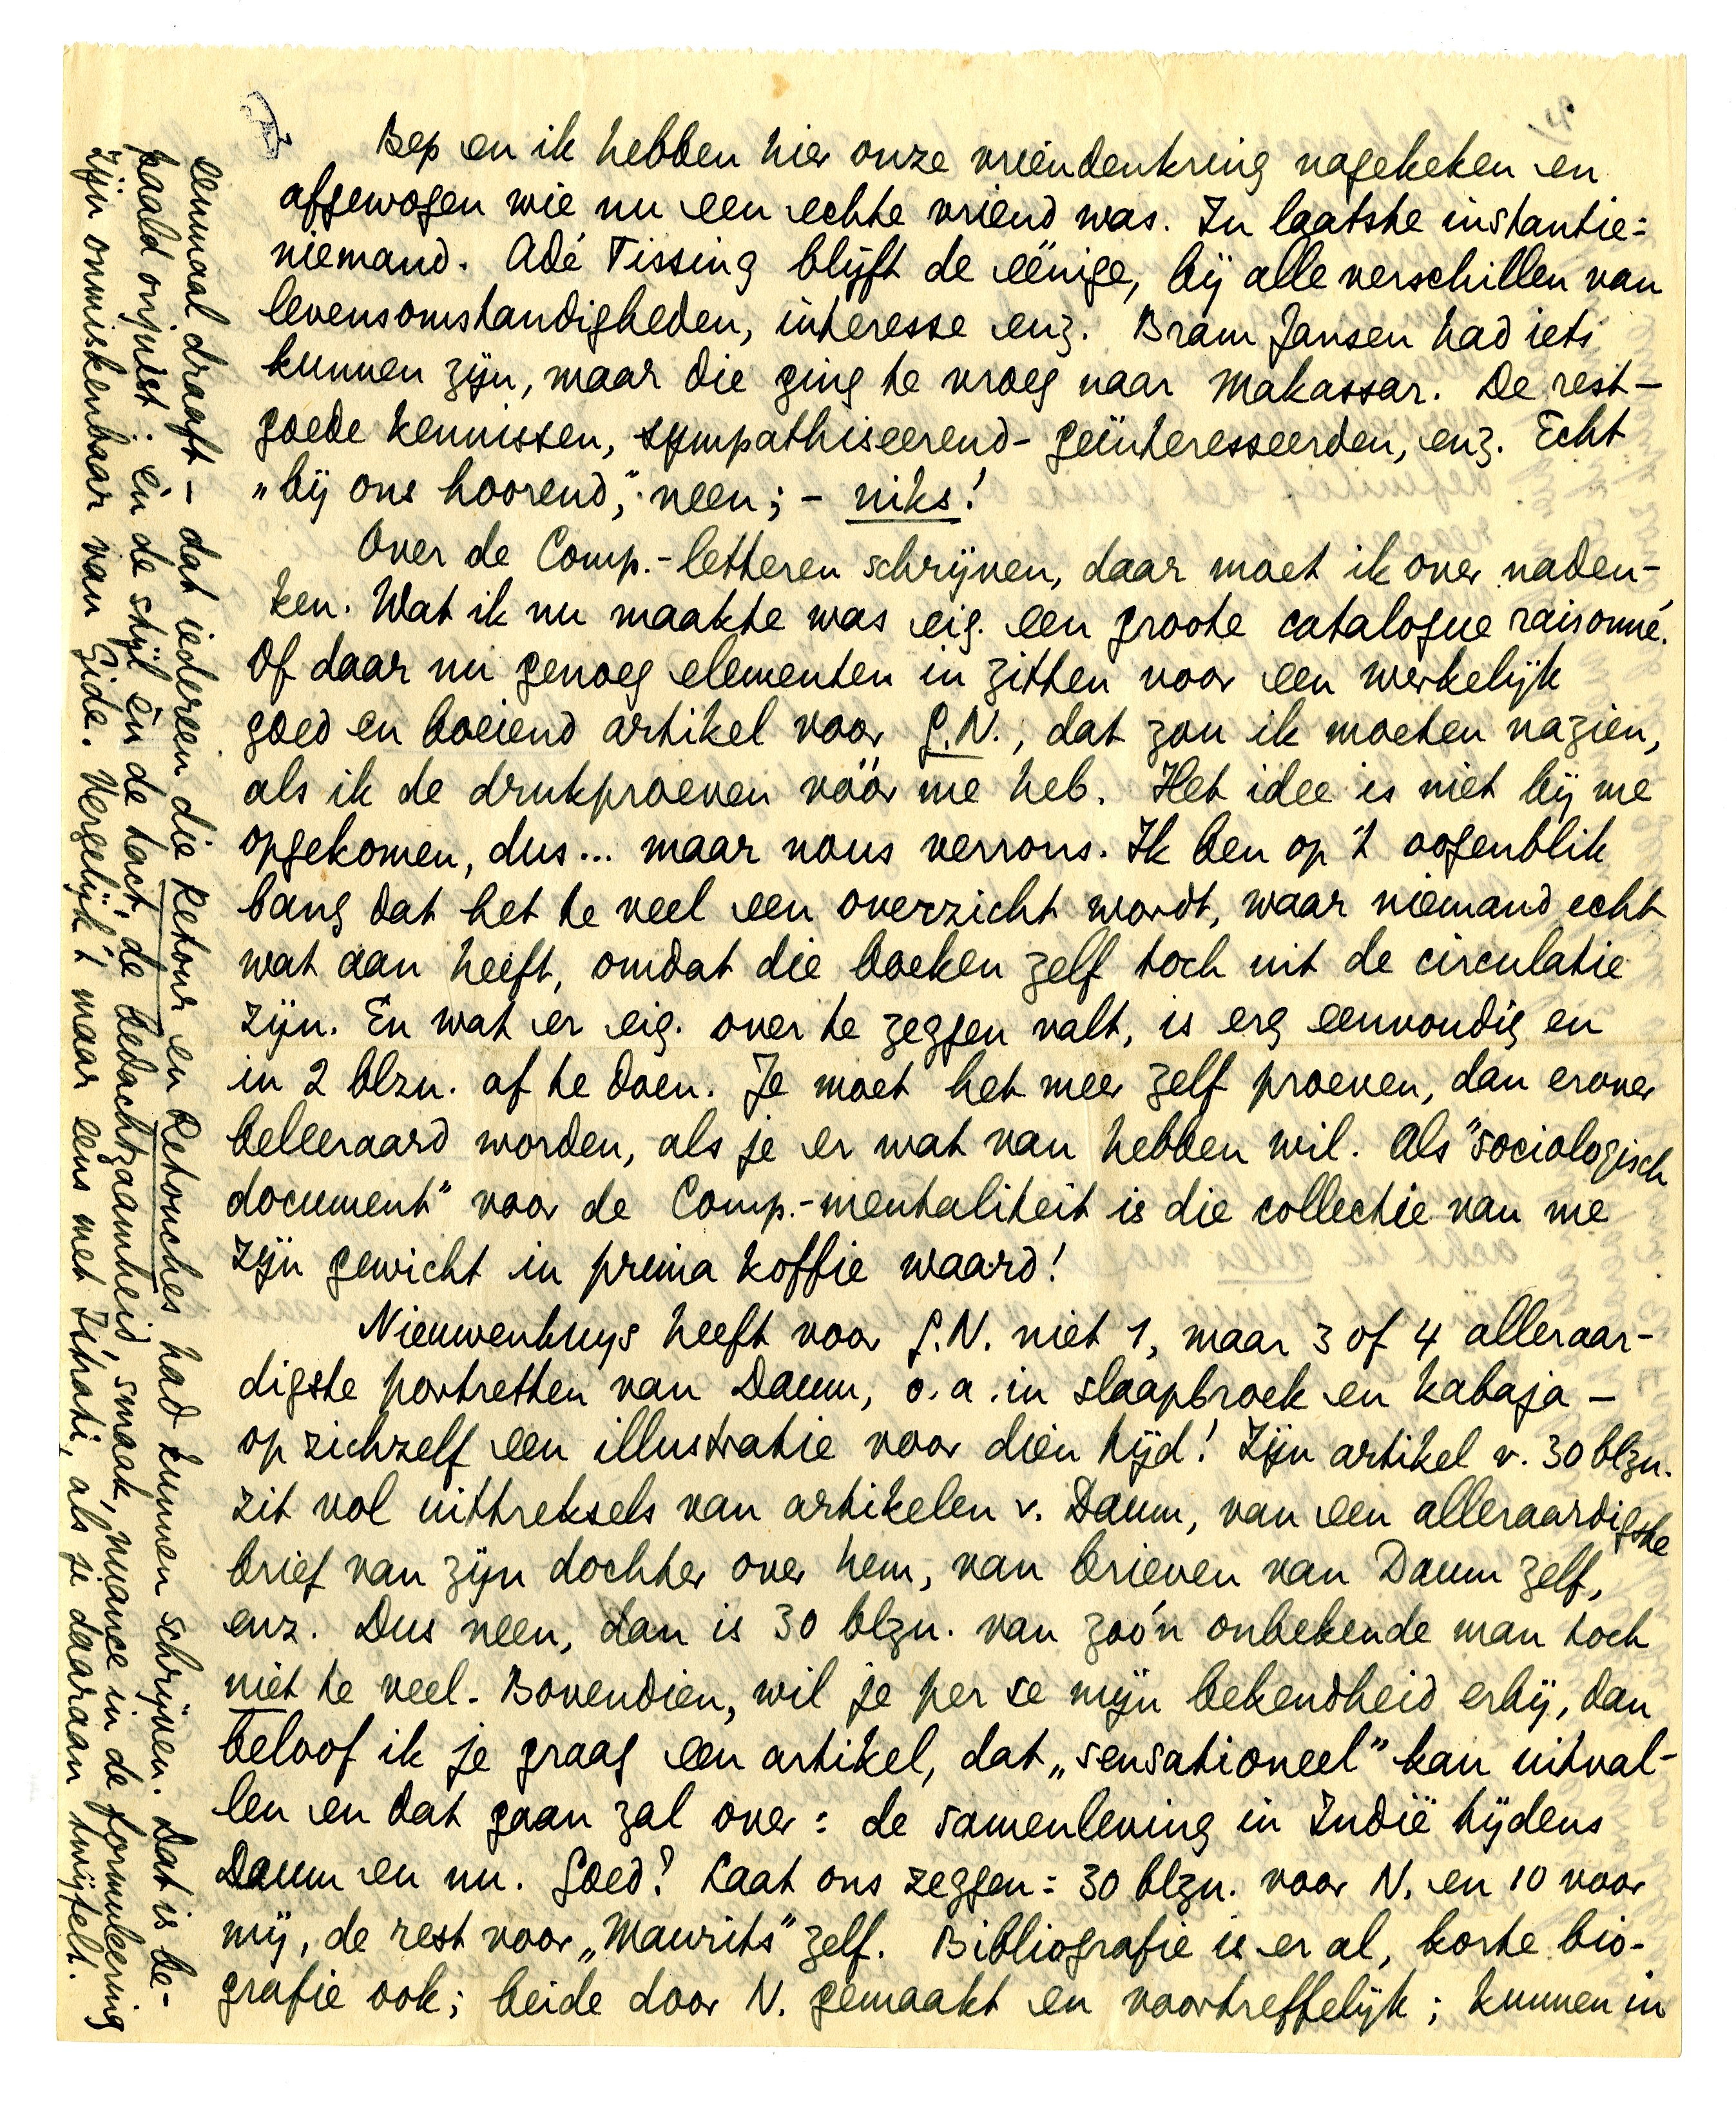 Bep en ik hebben hier onze vriendenkring nagekeken en
afgewogen wie nu een echte vriend was. In laatste instantie:
niemand. Adé Tissing blijft de eénige, bij alle verschillen van
levensomstandigheden, interesse enz. Bram Jansen had iets
kunnen zijn, maar die ging te vroeg naar Makassar. De rest —
goede kennissen, sympathiseerend-geïnteresseerden, enz. Echt
„bij ons hoorend," neen; – niks!
Over de Comp.-letteren schrijven, daar moet ik over naden-
ken. Wat ik nu maakte was eig. een groote catalogue raisonné.
Of daar nu genoeg elementen in zitten voor een werkelijk
goed en boeiend artikel voor G.N., dat zou ik moeten nazien,
als ik de drukproeven vóór me heb. Het idee is niet bij me
opgekomen, dus... maar nous verrons. Ik ben op 't oogenblik
bang dat het te veel een overzicht wordt, waar niemand echt
wat aan heeft, omdat die boeken zelf toch uit de circulatie
zijn. En wat er eig. over te zeggen valt, is erg eenvoudig en
in 2 blzn. af te doen. Je moet het meer zelf proeven, dan erover
beleeraard worden, als je er wat van hebben wil. Als "sociologisch
document" voor de Comp.-mentaliteit is die collectie van me
zijn gewicht in prima koffie waard!
Nieuwenhuys heeft voor G.N. niet 1, maar 3 of 4 alleraar-
digste portretten van Daum, o.a. in slaapbroek en kabaja —
op zichzelf een illustratie voor dien tijd! Zijn artikel v. 30 blzn.
zit vol uittreksels van artikelen v. Daum, van een alleraardigste
brief van zijn dochter over hem, van brieven van Daum zelf,
enz. Dus neen, dan is 30 blzn. van zoo'n onbekende man toch
niet te veel. Bovendien, wil je per se mijn bekendheid erbij, dan
beloof ik je graag een artikel, dat „sensationeel" kan uitval-
len en dat gaan zal over: de samenleving in Indië tijdens
Daum en nu. Goed? Laat ons zeggen: 30 blzn. voor N. en 10 voor
mij, de rest voor „Maurits" zelf. Bibliografie is er al, korte bio-
grafie ook; beide door N. gemaakt en voortreffelijk; kunnen in
eenmaal draaft — dat iedereen die Retour en Retouches had kunnen schrijven. Dat is be-
paald onjuist: èn de stijl èn de tact, de bedachtzaamheid, smaak, nuance in de formuleering
zijn onmiskenbaar van Gide. Vergelijk 't maar eens met Istrati, als je daaraan twijfelt.